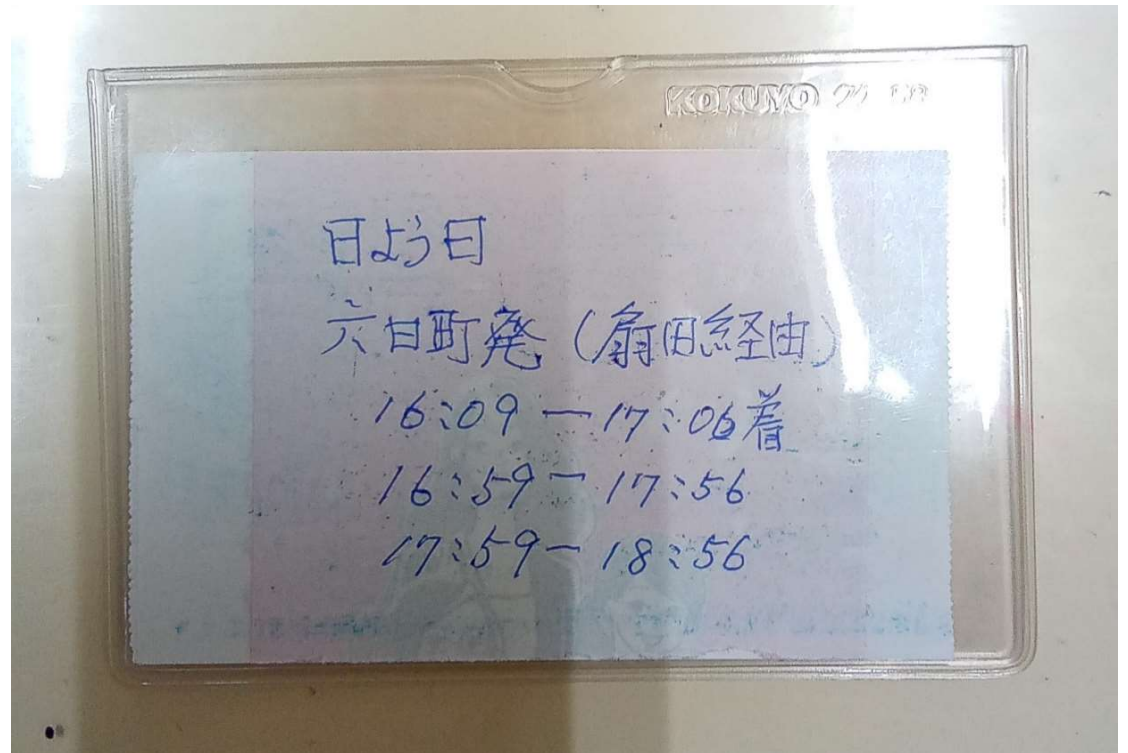 KOKUYO
日よう日
六日町発（扇田経由）
16:09ー17:06着
16:59ー17:56
17:59ー18:56